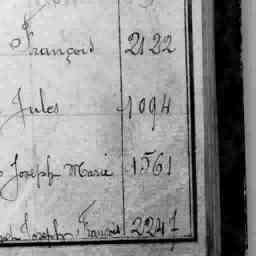 François 2122
Jules 1094
Joseph Marie 1561
Joseph François 2247